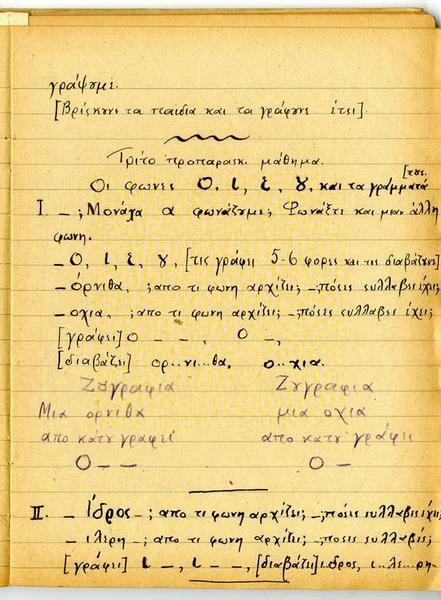 γράψυμε.
[Βρίσκυνε τα παιδια και τα γράφυνε ετσι].
Τρίτο προπαρασκ. μάθημα.
[τυς.
Οι φωνες Ο, ι, ε, ȣ, και τα γράμματά
I. – ; Μονάχα α φωνάζυμε; Φωνάξτε και μιαν άλλη
φωνη.
– Ο, ι, ε, ȣ, [τις γράφει 5-6 φορες και τις διαβάζυνε]
– όρνιθα, ; απο τι φωνη αρχίζει; – ; πόσες συλλαβες έχει;
– οχια, ; απο τι φωνη αρχίζει; – ; πόσες συλλαβες έχει;
[γράφει] Ο – – , Ο –,
[διαβάζει] ορ..νι..θα, ο..χια.
Ζυγραφια Ζυγραφια
Μια ορνιθα μια οχια
απο κατυ γραφει απο κατυ γράφει
Ο – – Ο –
II. – Ίδρος – ; απο τι φωνη αρχίζει; – ; πόσες συλλαβες έχει;
– ιλερη – ; απο τι φωνη αρχίζει; – ; ποσες συλλαβές;
[γράφει] ι –, ι – –, [διαβάζει] ιδρος, ι..λε..ρη-